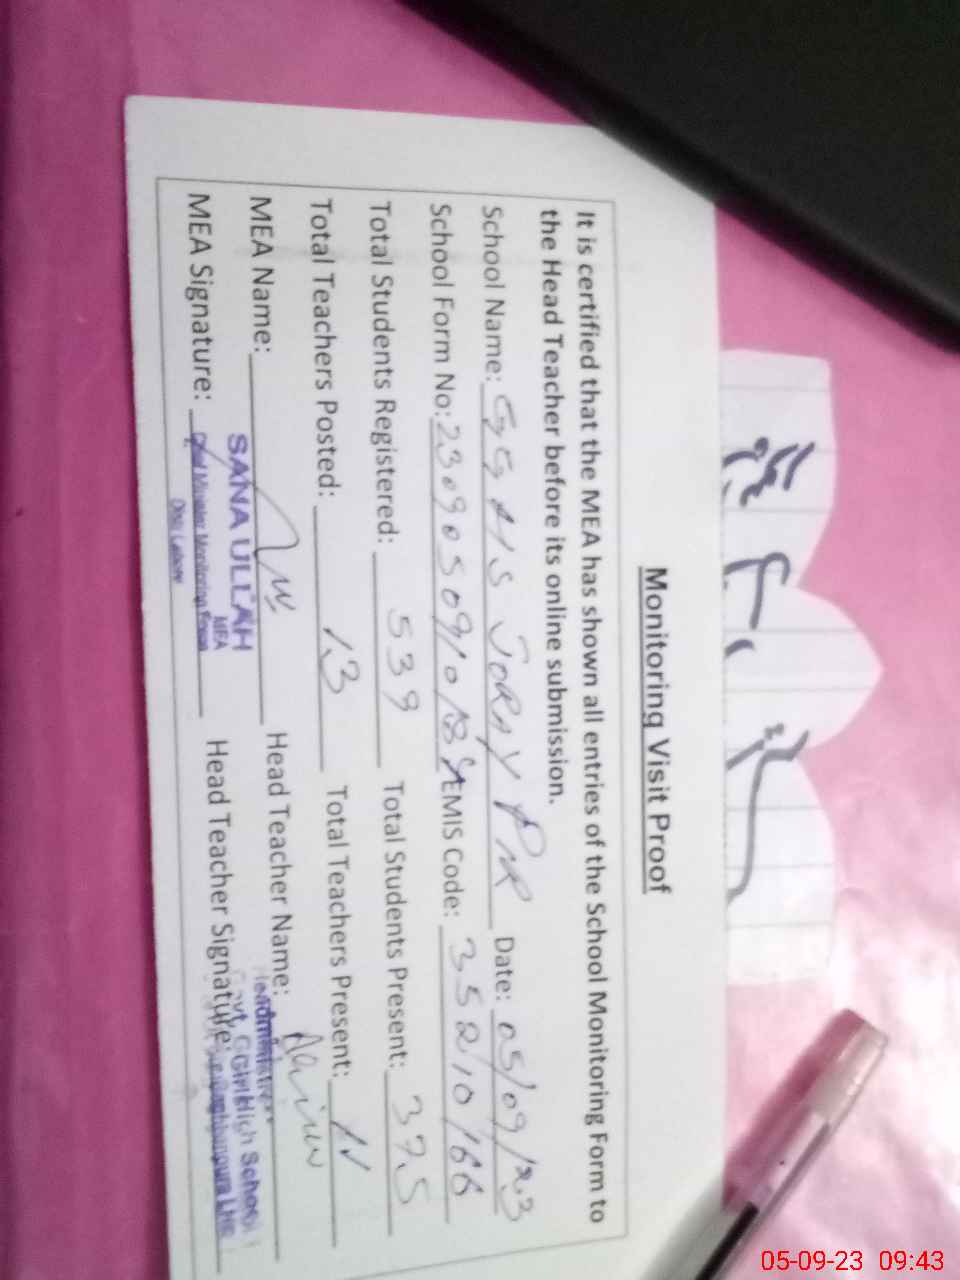 Monitoring Visit Proof
It is certified that the MEA has shown all entries of the School Monitoring Form to
the Head Teacher before its online submission.
School Name: GGHS SORAY PNR Date: 05/09/23
School Form No: EMIS Code: 35210166
Total Students Registered: 539 Total Students Present: 375
Total Teachers Posted: 13 Total Teachers Present:
MEA Name: Head Teacher Name:
SANA ULLAH
MEA
MEA Signature: Head Teacher Signature:
Chief Minister Monitoring Force
Distt Lahore
Headmistress
Govt. Girls High School
05-09-23 09:43